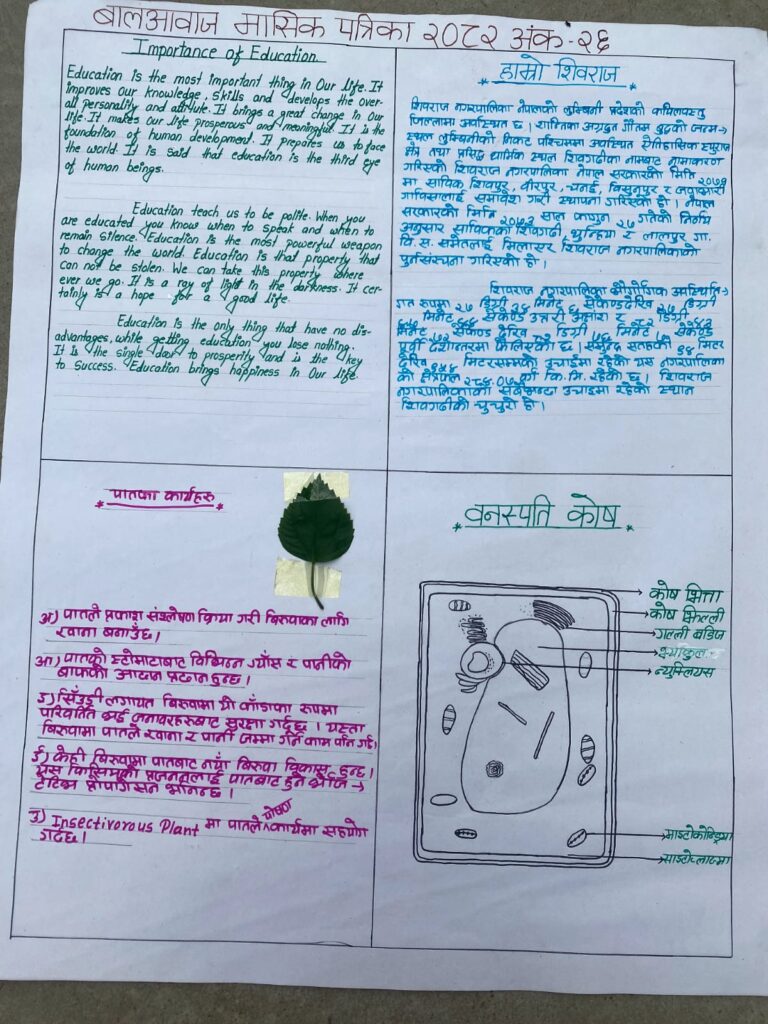 बालआवाज मासिक पत्रिका २०८२ अंक-२६
Importance of Education
Education is the most important thing in Our life. It
improves our knowledge, Skills and develops the over-
all personality and attitute. It brings a great change in Our
life. It makes our life prosperous and meaningful. It is the
foundation of human development. It prepares us to face
the world. It is said that education is the third eye
of human beings.
Education teach us to be polite. When you
are educated you know when to speak and when to
remain silence. Education is the most powerful weapon
to change the world. Education is that property that
can not be stolen. We can take this property where
ever we go. It is a ray of light in the darkness. It cer-
tainly is a hope for a good life.
Education is the only thing that have no dis-
advantages, while getting education you lose nothing.
It is the single door to prosperity and is the key
to success. Education brings happiness in Our life.
हाम्रो शिवराज
शिवराज नगरपालिका नेपालको लुम्बिनी प्रदेशको कपिलवस्तु
जिल्लामा अवस्थित छ। शान्तिका अग्रदुत गौतम बुद्धको जन्म→
स्थल लुम्बिनीको निकट पश्चिममा अवस्थित ऐतिहासिक
क्षेत्र तथा प्रसिद्ध धार्मिक स्थल शिवगढीका नामबाट नामाकरण
गरिएको शिवराज नगरपालिका नेपाल सरकारको मिति २०७१
मा साविक शिवपुर, वीरपुर, चनई, बिसुनपुर र जवाभारी
गाविसलाई समावेश गरी स्थापना गरिएको हो। नेपाल
सरकारको मिति २०७३ साल फागुन २७ गतेको निर्णय
अनुसार साविकका शिवगढी, धुन्हिया र लालपुर गा.
वि. स. समेतलाई मिलाएर शिवराज नगरपालिकाको
पुर्नसंरचना गरिएको हो।
शिवराज नगरपालिका भौगोलिक अवस्थिति→
गत रुपमा २७ डिग्री मिनेट सेकेण्डदेखि डिग्री
मिनेट सेकेण्ड उत्तरी अक्षांश र डिग्री
मिनेट सेकेण्ड देखि डिग्री मिनेट सेकेण्ड
पूर्वी देशान्तरमा फैलिएको छ। समुन्द्र सतहको मिटर
देखि मिटरसम्मको उचाईमा रहेको यस नगरपालिका
को क्षेत्रफल २८४.०७ वर्ग कि.मि. रहेको छ। शिवराज
नगरपालिकाको सबैभन्दा उचाइमा रहेको स्थान
शिवगढीको चुचुरो हो।
पातका कार्यहरु
अ) पातले प्रकाश संश्लेषण क्रिया गरी बिरुवाका लागि
खाना बनाउँछ।
आ) पातको स्टोमाटाबाट विभिन्न ग्याँस र पानीको
बाफको आदान प्रदान हुन्छ।
इ) सिँउडी लगायत बिरुवामा यो काँडाका रुपमा
परिवर्तित भई जनावरहरुबाट सुरक्षा गर्दछ। यस्ता
बिरुवामा पातले खाना र पानी जम्मा गर्ने काम पनि गर्छ।
ई) केही बिरुवामा पातबाट नयाँ बिरुवा विकास हुन्छ।
यस किसिमको प्रजननलाई पातबाट हुने भेजि→
टेटिभ प्रोपागेसन भनिन्छ।
उ) Insectivorous Plant मा पातले पोषण कार्यमा सहयोग
गर्दछ।
वनस्पति कोष
कोष भित्ता
कोष झिल्ली
गल्गी बडिज
भ्याकुल
न्युक्लियस
माइटोकोन्ड्रिया
साइटोप्लाज्मा